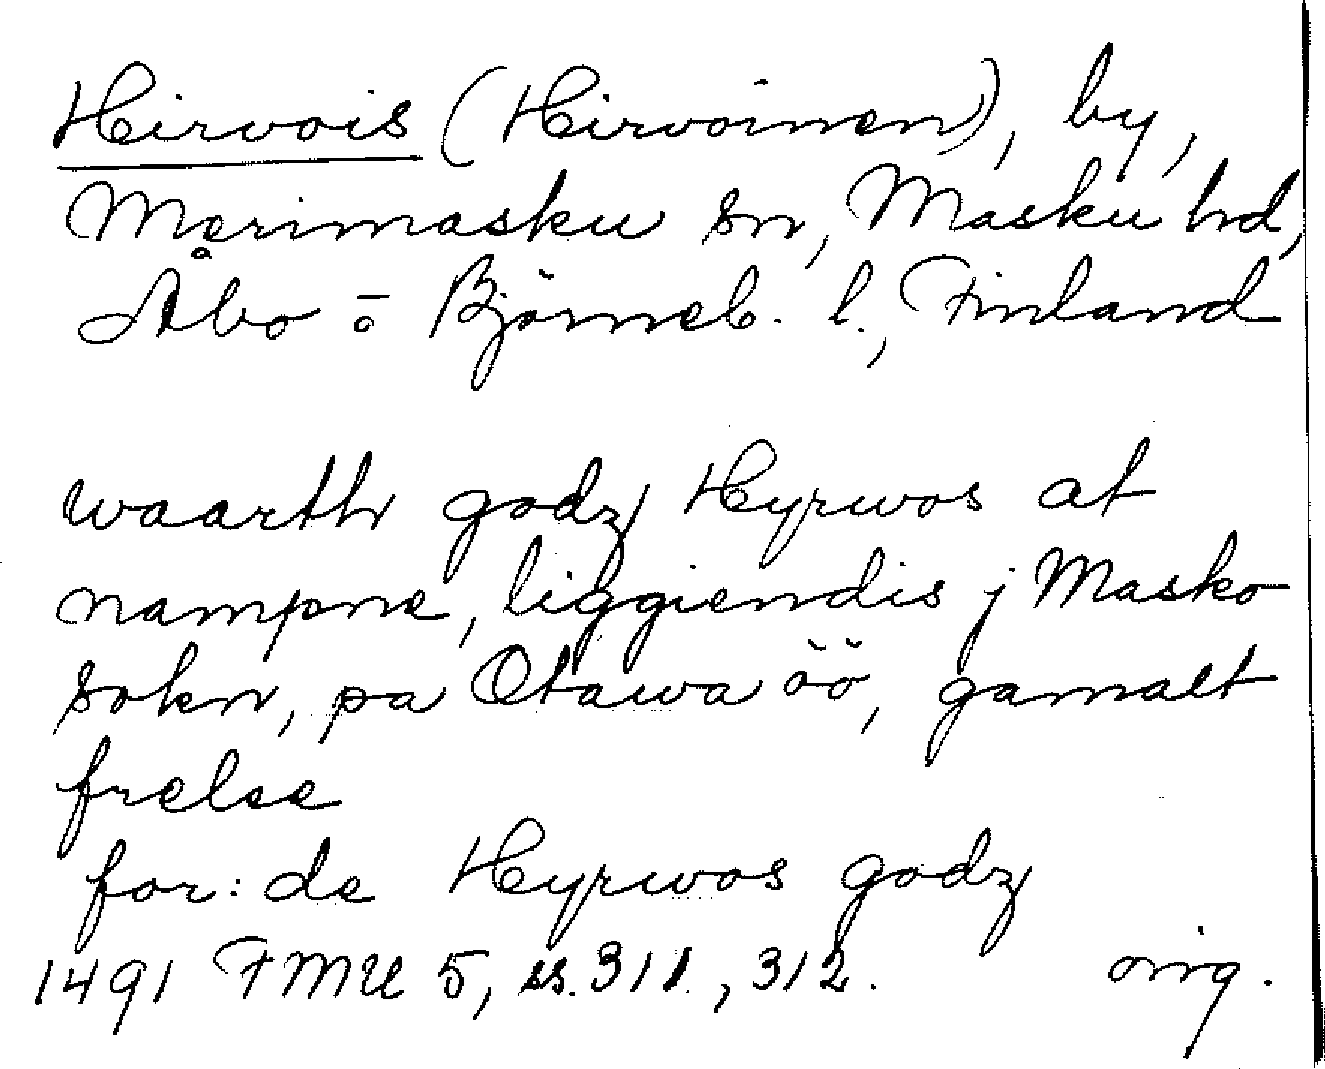 Hirvois (Hirvoinen), by,
Merimasku sn, Masku hd,
Åbo o Björneb. l., Finland
waarth godz Hyrwos at
nampne, liggiendis j Masko
sokn, pa Otawa öö, gamalt
frelse
for:de Hyrwos godz
1491 FMU 5, ss. 311, 312. orig.